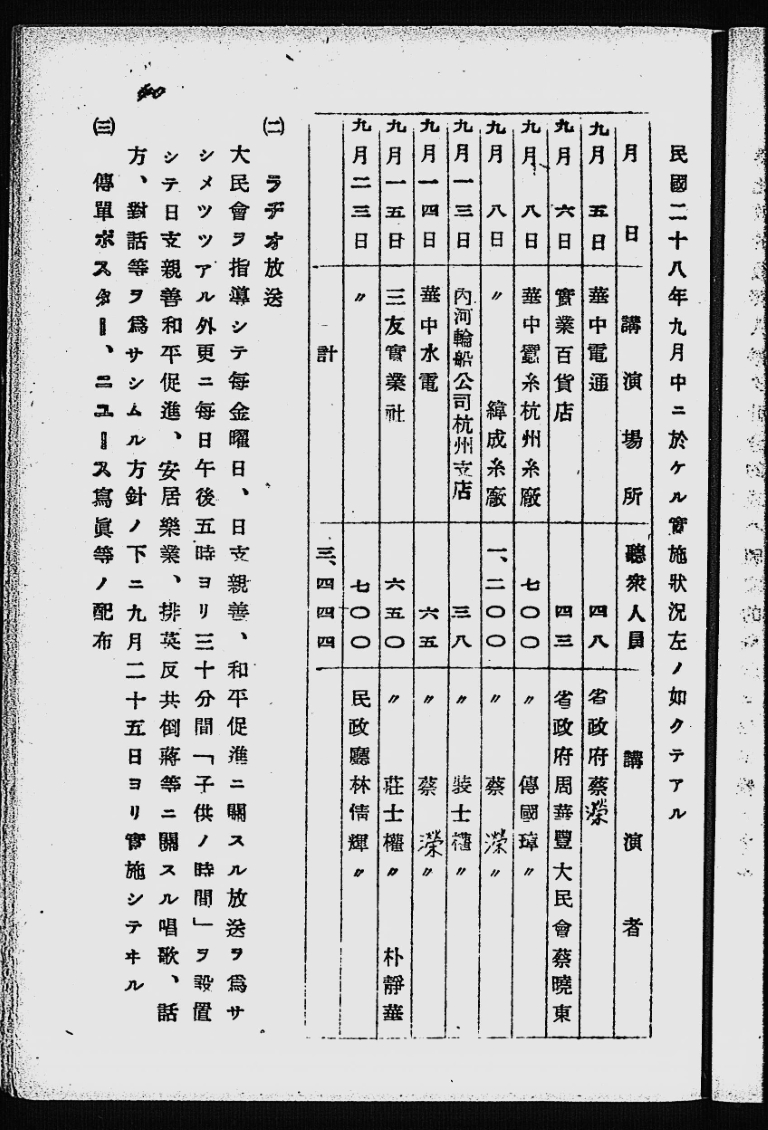 民國二十八年九月中ニ於ケル實施狀況左ノ如クテアル
月日 講演場所 聽衆人員 講演者
九月五日 華中電通 四八 省政府蔡濚
九月六日 實業百貨店 四三 省政府周華豐 大民會蔡曉東
九月八日 華中蠶糸杭州糸廠 七〇〇 〃 傳國璋 〃
九月八日 〃 緯成糸廠 一、二〇〇 〃 蔡濚 〃
九月一三日 內河輪船公司杭州支店 三八 〃 士權 〃
九月一四日 華中水電 六五 〃 蔡濚 〃
九月一五日 三友實業社 六五〇 〃 莊士權 〃 朴靜華
九月二三日 〃 七〇〇 民政廳林倩輝 〃
計 三、四四四
㈡ ラヂオ放送
大民會ヲ指導シテ每金曜日、日支親善、和平促進ニ關スル放送ヲ爲サ
シメツツアル外更ニ每日午後五時ヨリ三十分間「子供ノ時間」ヲ設置
シテ日支親善和平促進、安居樂業、排英反共倒蔣等ニ關スル唱歌、話
方、對話等ヲ爲サシムル方針ノ下ニ九月二十五日ヨリ實施シテヰル
㈢ 傳單ポスター、ニュース寫眞等ノ配布